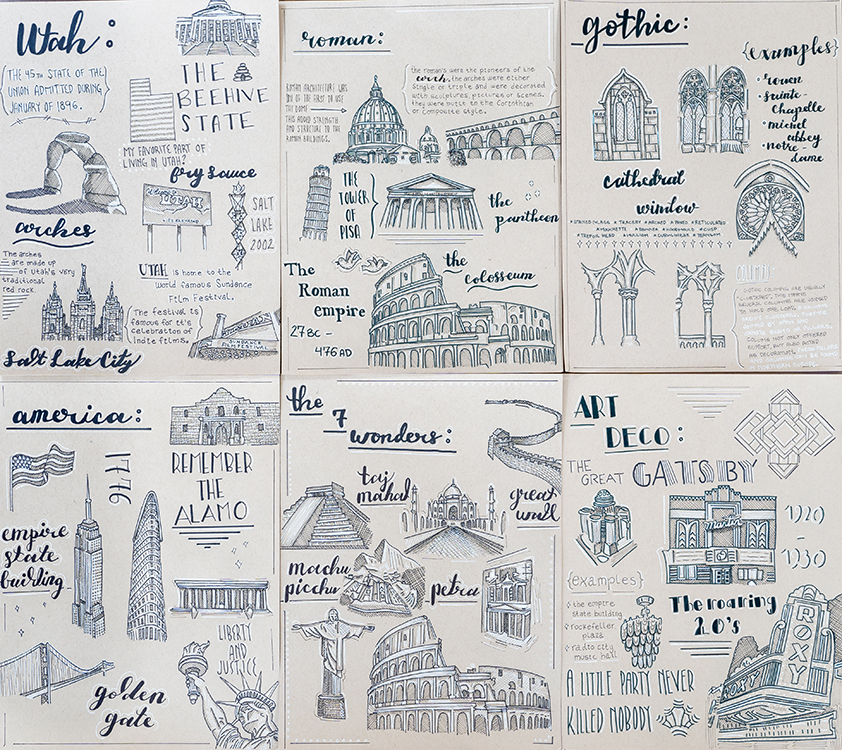 Utah:
THE 45TH STATE OF THE
UNION ADMITTED DURING
JANUARY OF 1896.
THE
BEEHIVE
STATE
MY FAVORITE PART OF
LIVING IN UTAH?
fry sauce
arches
UTAH
SALT
LAKE
2002
The arches
are made up
of Utah's very
traditional
red rock.
UTAH is home to the
World famous Sundance
Film Festival.
The festival is
famous for it's
celebration of
indie films.
SUNDANCE
FILM FESTIVAL
Salt Lake City
roman:
ROMAN ARCHITECTURE WAS
THE DOME
THIS ADDED STRENGTH
AND STRUCTURE TO THE
ROMAN BUILDINGS.
the roman's were the pioneers of the
arch, the arches were either
single or triple and were decorated
with sculptures, pictures or scenes.
they were built to the Corinthian
or Composite style.
THE
TOWER
OF
PISA
the
pantheon
The
Roman
empire
27 BC -
476 AD
the
colosseum
gothic:
{examples}
rouen
sainte-
chapelle
michel
abbey
notre-
dame
cathedral
window
COLUMNS
GOTHIC COLUMNS ARE USUALLY
"CLUSTERED", THIS MEANS
SEVERAL COLUMNS ARE JOINED
TO HOLD ONE LOAD.
COLUMNS NOT ONLY OFFERED
SUPPORT, BUT ALSO ACTED
AS DECORATION.
america:
1776
REMEMBER
THE
ALAMO
empire
state
building
LIBERTY
AND
JUSTICE
golden
gate
the
7
wonders:
taj
mahal
great
wall
machu
picchu
petra
ART
DECO:
THE
GREAT GATSBY
1920
-
1930
{examples}
the empire
state building
rockefeller
plaza
radio city
music hall
The roaring
20's
ROXY
ROXY
A LITTLE PARTY NEVER
KILLED NOBODY